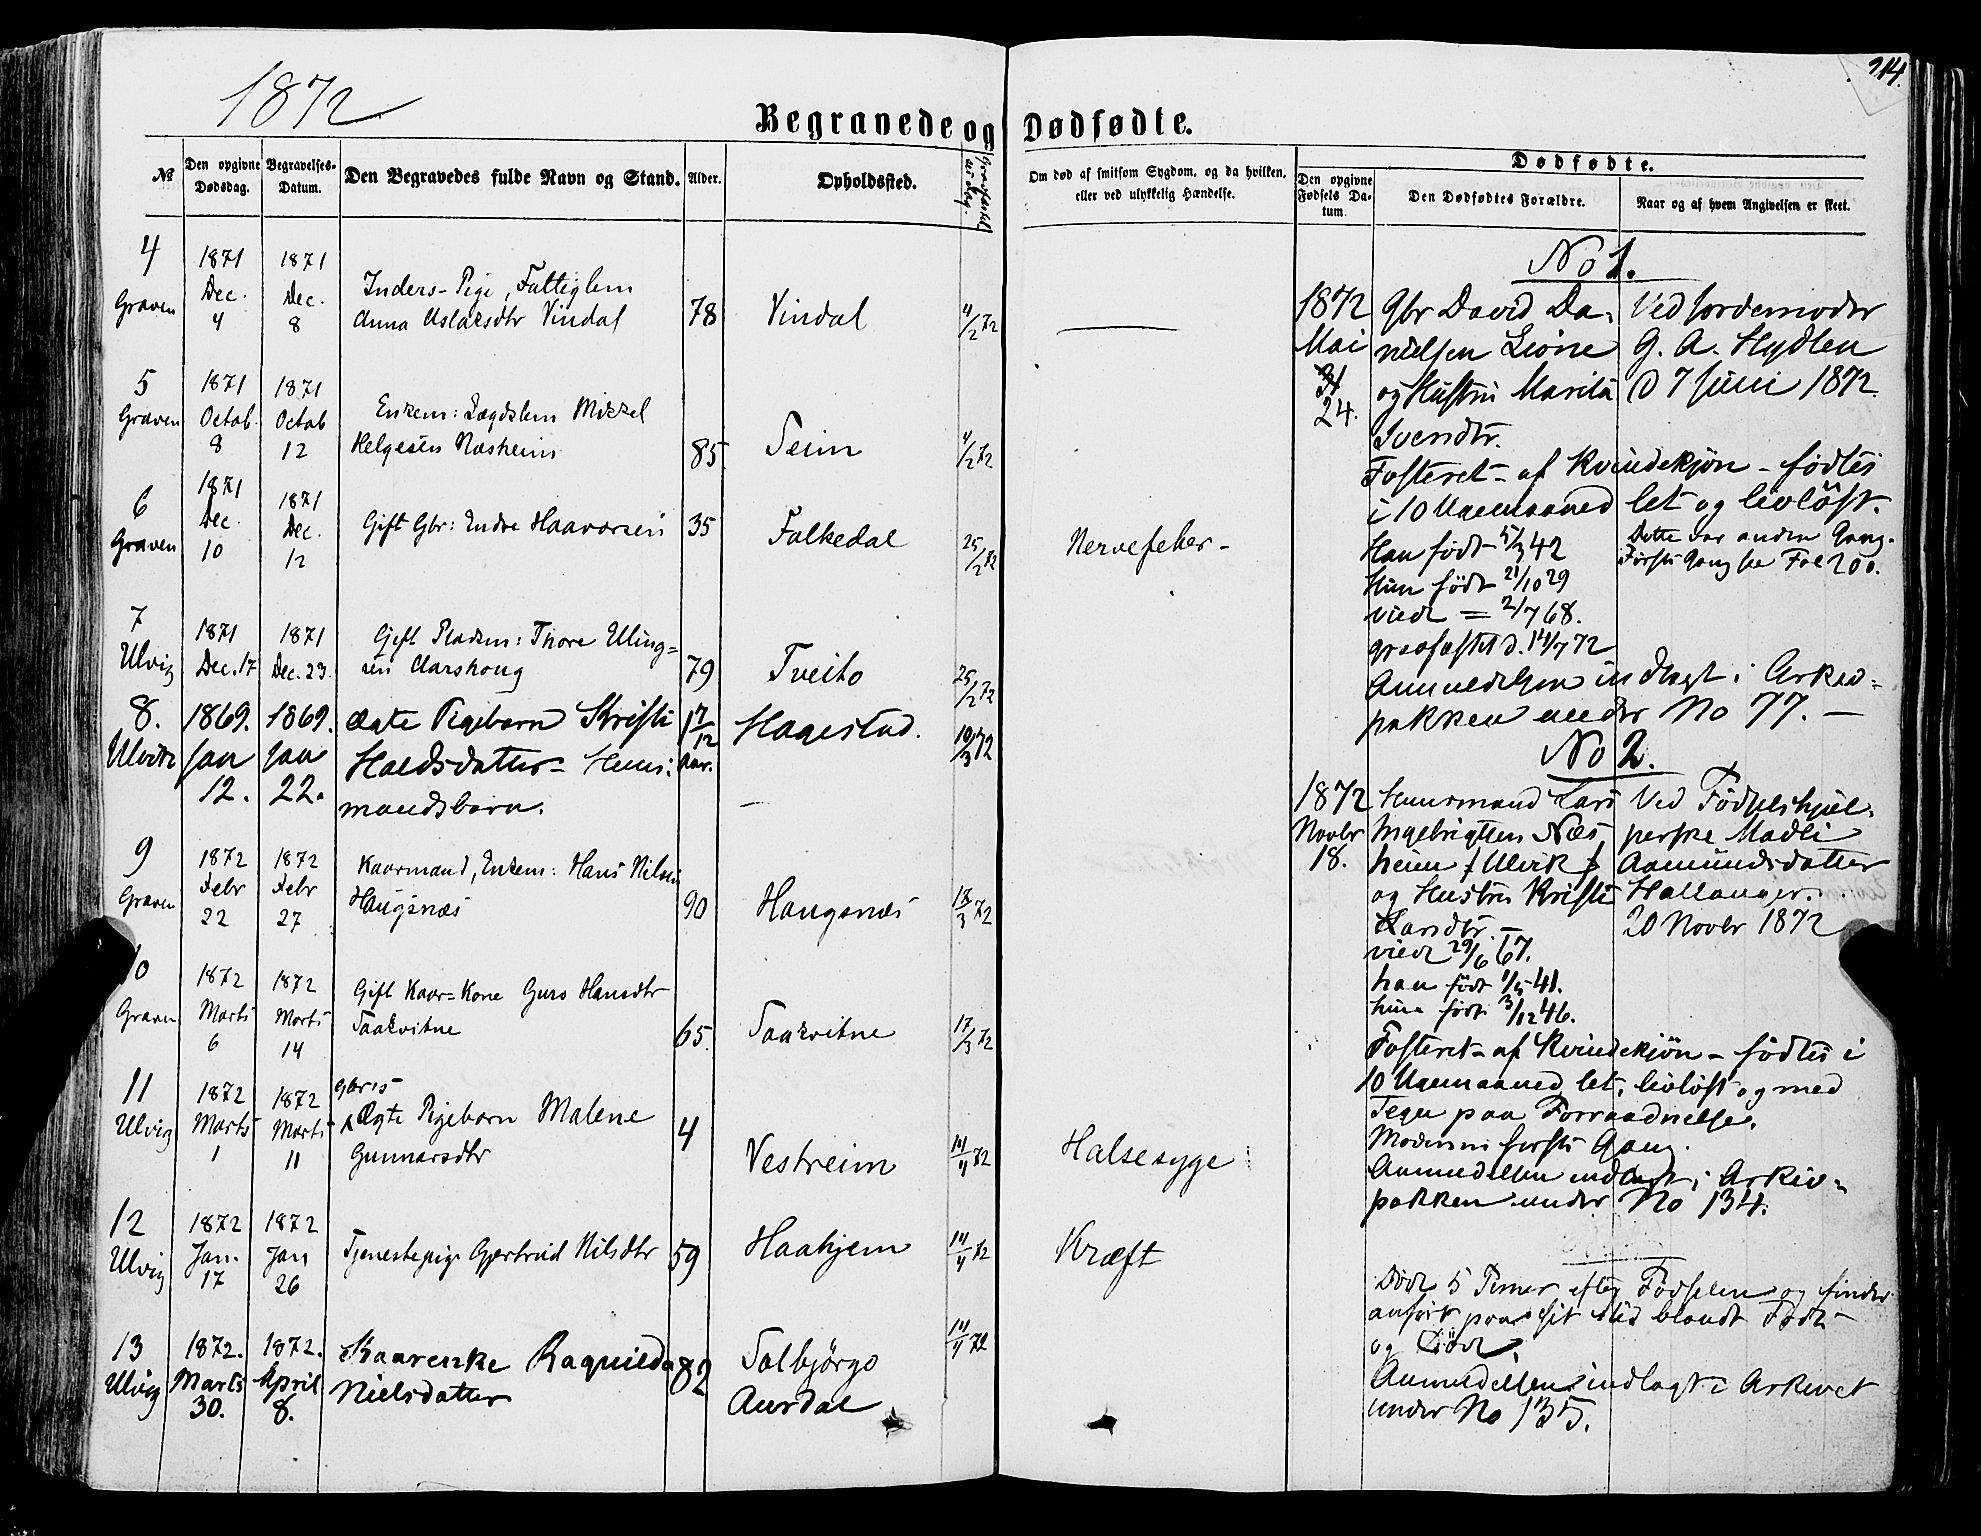 1872
214.
Begravede og Dødfødte.
No
Den opgivne Dødsdag.
Begravelses-Datum.
Den Begravedes fulde Navn og Stand.
Alder.
Opholdssted.
Om død af smitsom Sygdom, og da hvilken,
eller ved ulykkelig Hændelse.
Dødfødte.
Den opgivne Fødsels Datum.
Den Dødfødtes Forældre.
Naar og af hvem Angivelsen er skeet.
4
Graven
1871
Dec.
4
1871
Dec.
8
Inders-Pige, Fattiglem
Anna Aslaksdtr Vindal
78
Vindal
11/2 72
5
Graven
1871
Octob.
8
1871
Octob
12
Enkem: Lægdslem Mikkel
Helgesen Næsheim
85.
Seim
11/2 72
6
Graven
1871
Dec.
10
1871
Dec.
12
Gift Gbr: Endre Haavorsen
35
Folkedal
25/2 72
Nervefeber-
7
Ulvig
1871
Dec. 17
1871
Dec. 23
Gift Pladsm: Thore Elling=
sen Aarshoug
79
Tveito
25/2 72
8.
1869.
Jan
12.
1869.
Jan
22.
Ægte Pigebarn Kristi
Holdsdatter- Huus:
mandsbarn.
1 7/12
Aar.
Hagestad.
10/3 72
9
Graven
1872
Febr
22
1872
Febr
27
Kaarmand, Enkem: Hans Nilsen
Haugsnæs
90
Haugsnæs
13/3 72
10
Graven
1872
Marts
6
1872
Marts
14
Gift Kaar=Kone Guro Hansdtr
Saakvitne
65.
Saakvitne
17/3 72
11
Ulvig
1872
Marts
1
1872
Marts
11
Gbr's
Ægte Pigebarn Malene
Gunnarsdtr
4
Vestreim
14/4 72
Halsesyge
12
Ulvig
1872
Jan.
17
1872
Jan
26
Tjenestepige Gjertrud Nilsdtr
59
Haahjem
14/4 72
Kræft
13
Ulvig
1872.
Marts
30.
1872.
April
8.
Kaarenke Ragnilda
Nielsdatter
82
Solbjørgo
Aurdal
14/4 72
No 1.
1872
Mai
24.
Gbr David Da-
nielsen Lione
og Hustru Marita
Svendtr.
Ved Jordemoder
G. A. Hydlen
d 7 Juni 1872.
Fosteret - af Kvindekjøn - fødtes
i 10 Ugemaaned let og livløst.
Han født 5/3 42
Hun født 21/10 29
viede = 2/7 68.
gravfæstet d. 14/7 72
Dette var anden Gang.
Første Gang se Fol 200.
Anmeldelsen indlagt i Arkiv-
pakken under No 77. -
No 2.
1872
Novbr
18.
Huusmand Lars
Ingebrigtsen Næs
heim / Ulvik /
og Hustru Kristi
Larsdtr. -
viede 29/6 67.
han født 1/5 41.
hun født 3/12 46.
Ved Fødselshjæl-
perske Madli
Aamundsdatter
Hallanger.
20 Novbr 1872
Fosteret - af Kvindekjøn - fødtes i
10 Ugemaaned let, livløst og med
Tegn paa Forraadnelse.
Moderens første Gang.
Anmeldelsen indlagt i Arkiv-
pakken under No 134.
Døde 5 Timer efter Fødselen og findes
anført paa sit Sted blandt Født-
og Døde.
Anmeldelsen indlagt i Arkivet
under No 135.